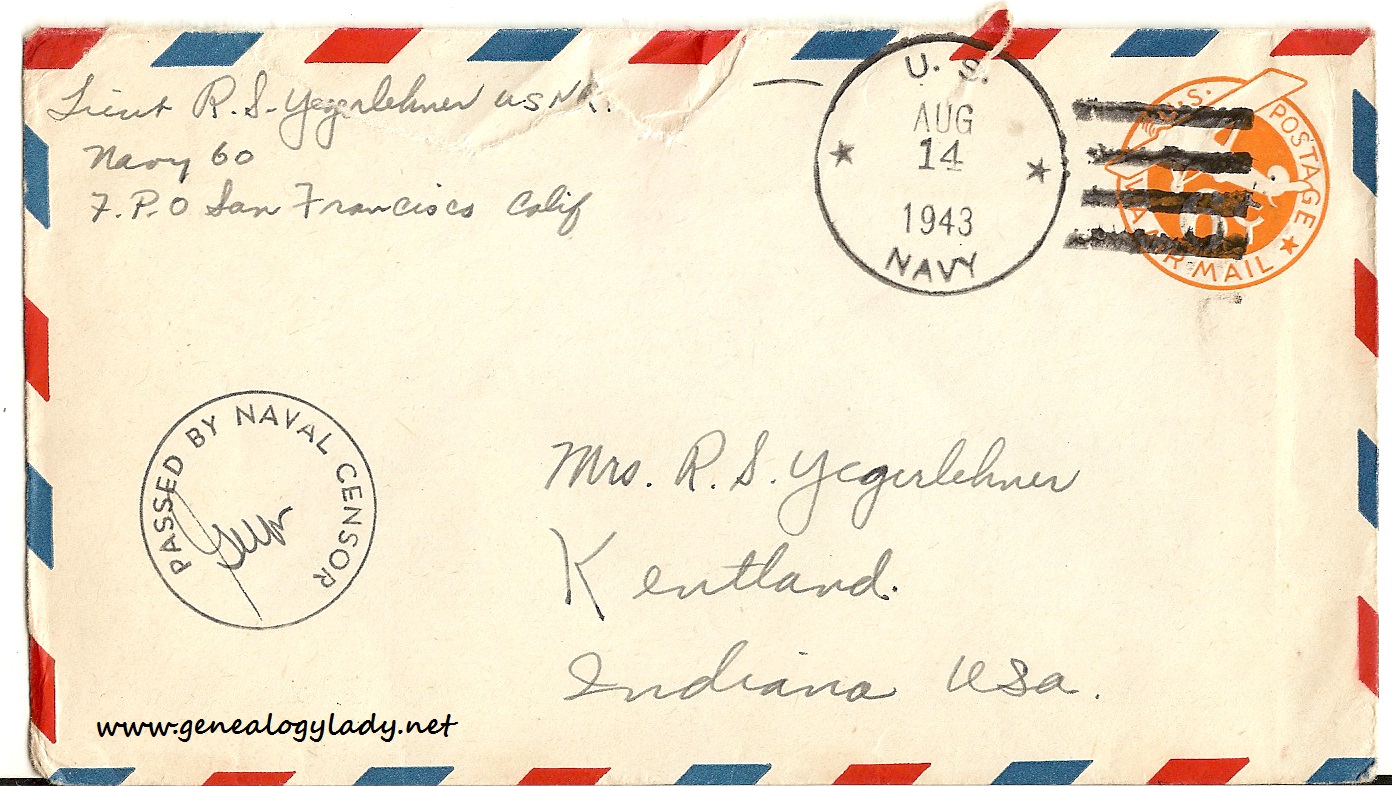 Lieut R. S. Yegerlehner USNR.
Navy 60
F.P.O San Francisco Calif
U. S.
AUG
14
1943
NAVY
U.S. POSTAGE
6¢
VIA AIR MAIL
PASSED BY NAVAL CENSOR
Mrs. R. S. Yegerlehner
Kentland.
Indiana USa.
www.genealogylady.net